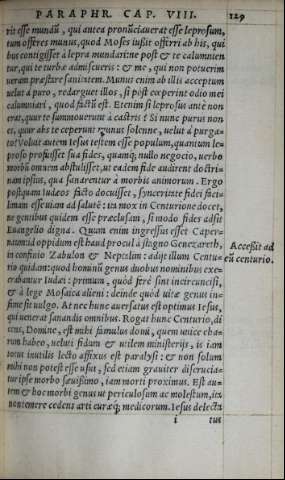 PARAPHR. CAP. VIII. 129
rit esse mundū, qui antea pronūciauerat esse leprosum,
tum offeres munus, quod Moses iussit offerri ab his, qui
bus contigisset à lepra mundari: ne post & te calumnien
tur, qui te turbæ admiscueris: & me, qui non potuerim
ueram præstare sanitatem. Munus enim ab illis acceptum
uelut à puro, redarguet illos, si post experint odio mei
calumniari, quod factū est. Etenim si leprosus antè non
eras, quur te summouerunt à castris? Si nunc purus non
es, quur abs te ceperunt munus solenne, uelut à purga-
to? Voluit autem Iesus testem esse populum, quantum le-
proso profuisset sua fides, quamq; nullo negocio, uerbo
morbū omnem abstulisset, ut eadem fide audirent doctri-
nam ipsius, qua sanarentur à morbis animorum. Ergo
postquam Iudæos facto docuisset, synceritate fidei faci-
limam esse uiam ad salutē: ita mox in Centurione docet,
ne gentibus quidem esse præclusam, si modo fides adsit
Euangelio digna. Quum enim ingressus esset Caper-
naum: id oppidum est haud procul à stagno Genezareth,
in confinio Zabulon & Neptalim: adijt illum Centu-
rio quidam: quod hominū genus duobus nominibus exe-
crabantur Iudæi: primum, quòd ferè sint incircuncisi,
& à lege Mosaica alieni: deinde quòd uitæ genus in-
fame sit uulgo. At nec hunc auersatus est optimus Iesus,
qui uenerat sanandis omnibus. Rogat hunc Centurio, di
cens, Domine, est mihi famulus domi, quem unice cha-
rum habeo, uelut fidum & utilem ministerijs, is iam
totus inutilis lecto affixus est paralysi: & non solum
mihi non potest esse usui, sed etiam grauiter discrucia-
tur ipse morbo sæuissimo, iam morti proximus. Est au-
tem & hoc morbi genus ut periculosum ac molestum, ita
non temere cedens arti curæq́; medicorum. Iesus delecta
i tus
Accessit ad
eū centurio.